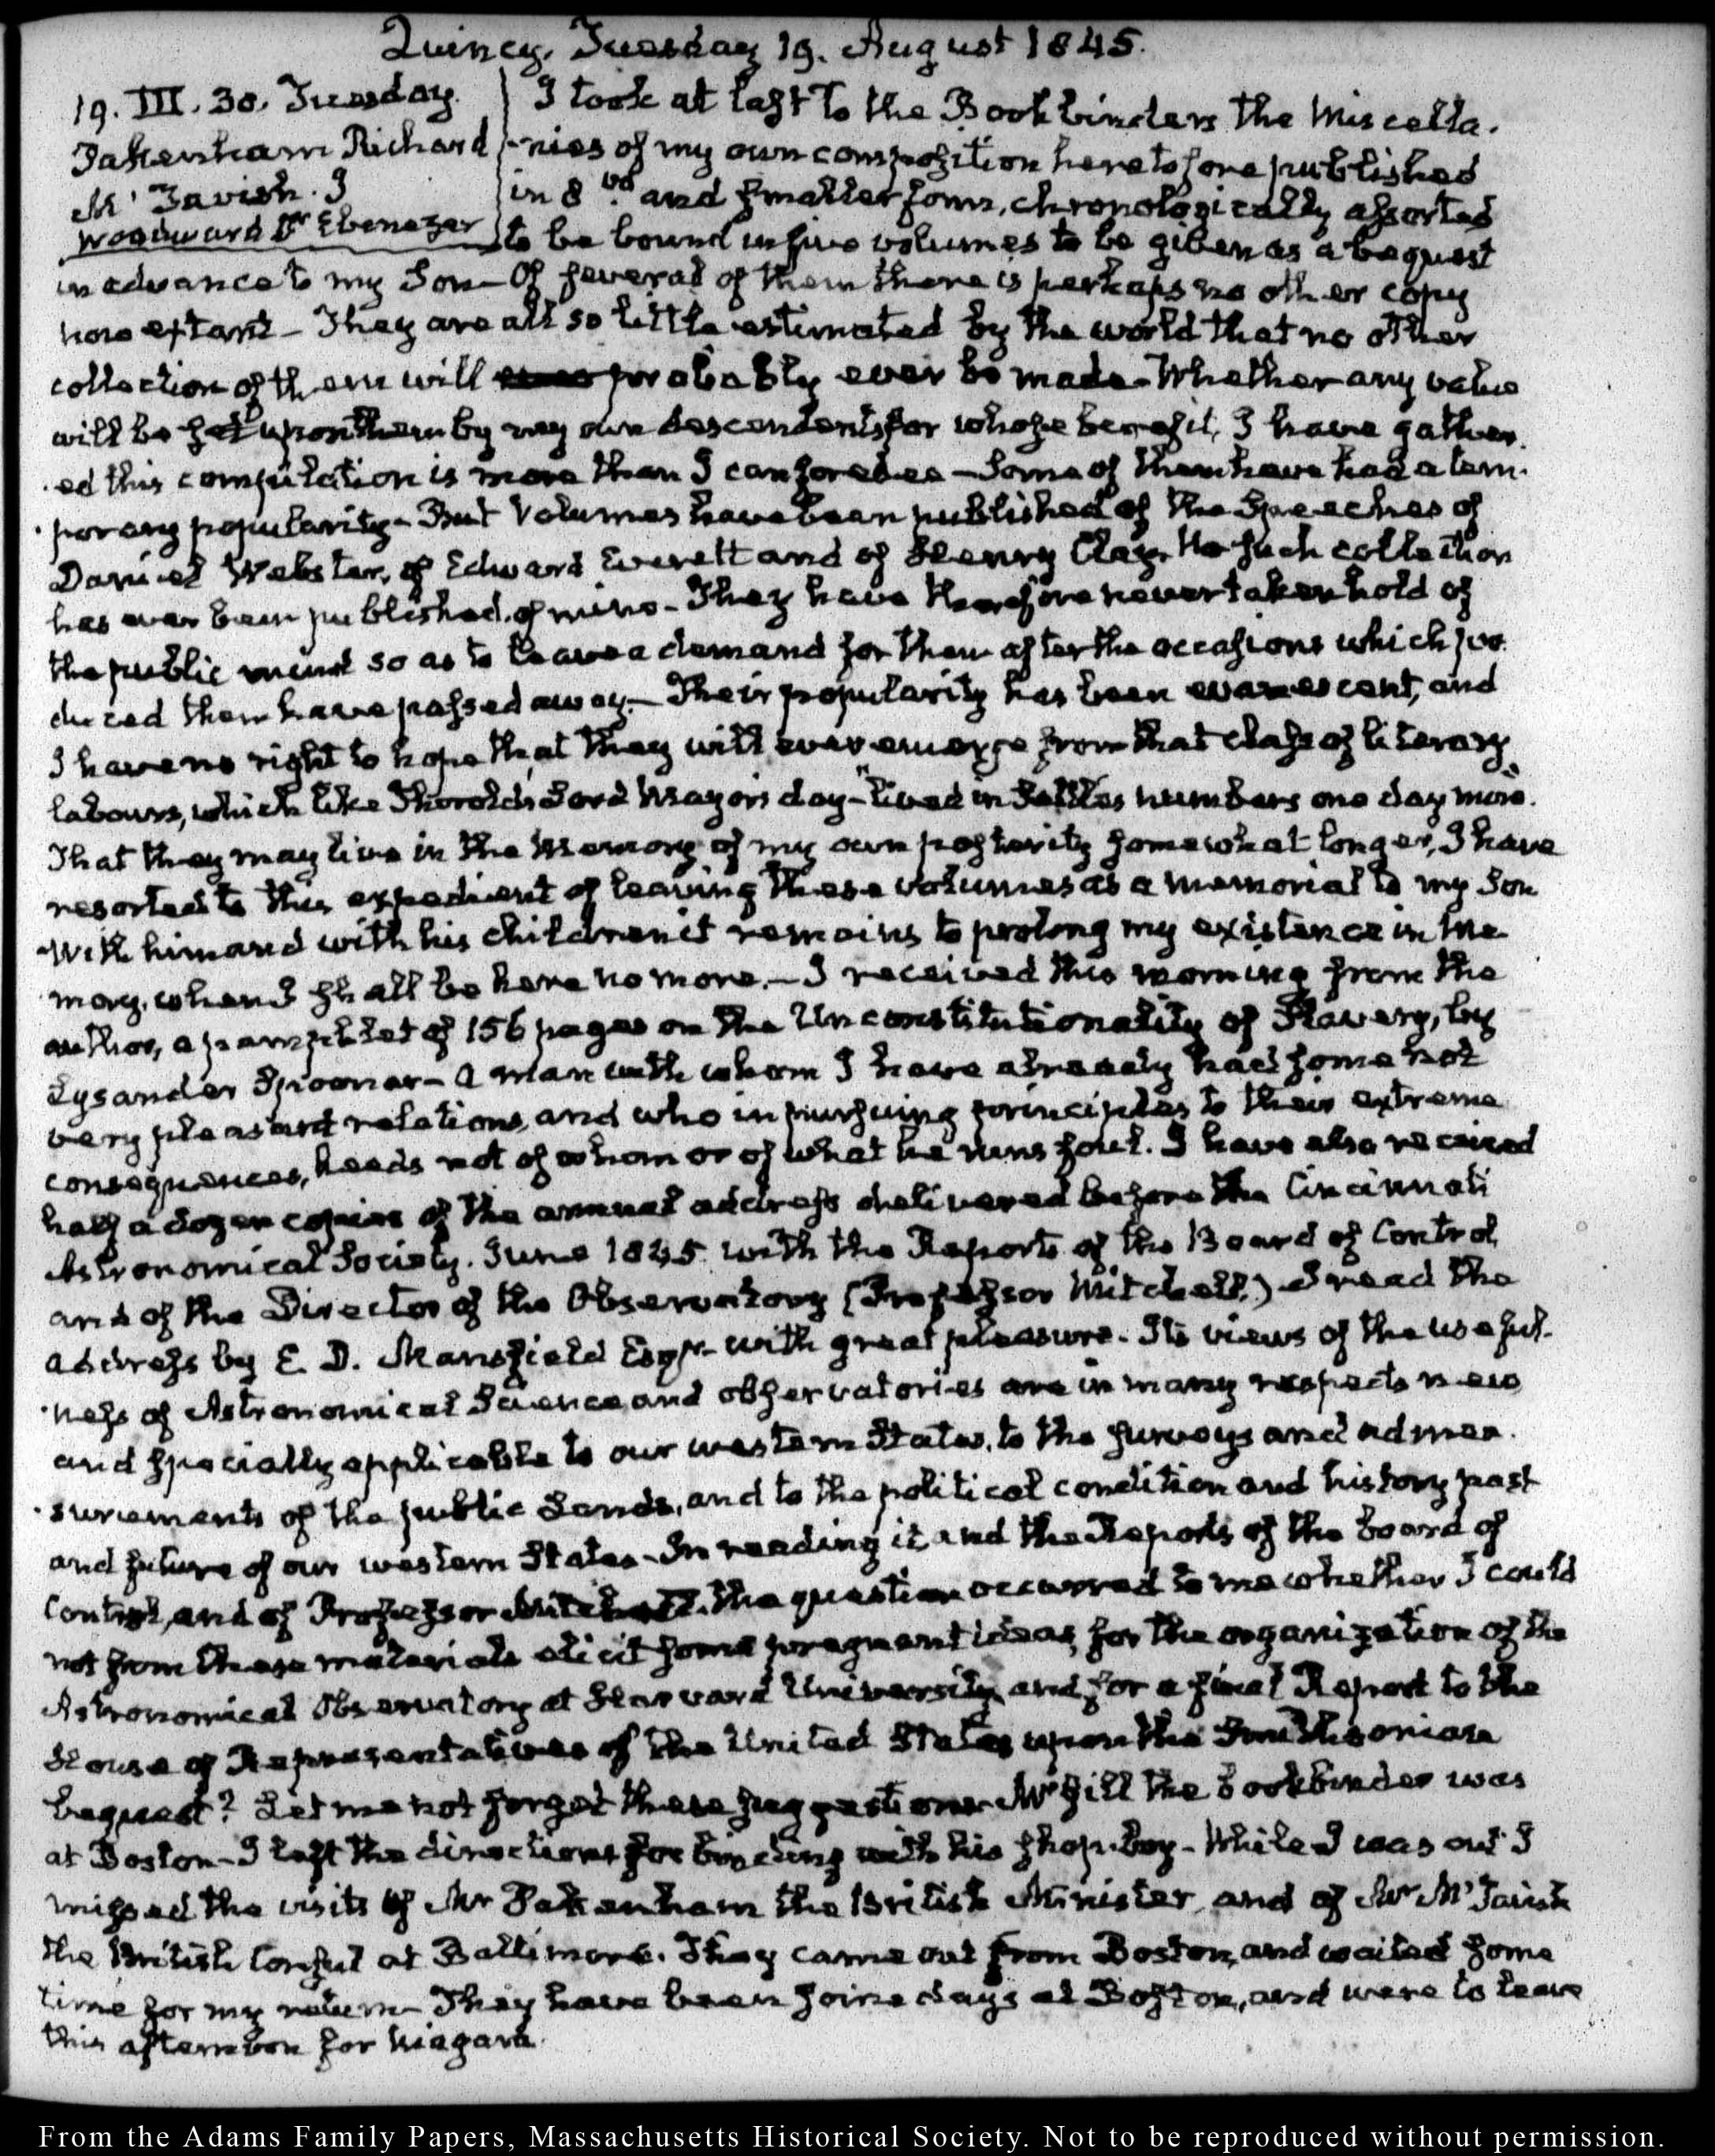 Quincy, Tuesday 19. August 1845.
19. III. 30. Tuesday.
Pakenham Richard
McTavish. J
Woodward Dr Ebenezer
I took at last to the Bookbinders the Miscella-
-nies of my own composition heretofore published
in 8vo. and smaller form, chronologically assorted
to be bound in five volumes to be given as a bequest
in advance to my Son— Of several of them there is perhaps no other copy
now extant— They are all so little estimated by the world that no other
collection of them will probably ever be made— Whether any value
will be set upon them by my own descendents for whose benefit, I have gather-
-ed this compilation is more than I can foresee— Some of them have had a tem-
-porary popularity— But Volumes have been published of the Speeches of
Daniel Webster, of Edward Everett and of Henry Clay. No such collection
has ever been published of mine— They have therefore never taken hold of
the public mind so as to leave a demand for them after the occasions which pro-
duced them have passed away.— Their popularity has been evanescent, and
I have no right to hope that they will ever emerge from that class of literary
labours, which like Thorold's Lord Mayor's day— "lived in Settles numbers one day more."
That they may live in the Memory of my own posterity somewhat longer, I have
resorted to this expedient of leaving these volumes as a memorial to my Son
With him and with his children it remains to prolong my existence in me-
mory, when I shall be here no more.— I received this morning from the
author, a pamphlet of 156 pages on the Unconstitutionality of Slavery, by
Lysander Spooner— a man with whom I have already had some not
very pleasant relations, and who in pursuing principles to their extreme
consequences, heeds not of whom or of what he runs foul. I have also received
half a dozen copies of the annual address delivered before the Cincinnati
Astronomical Society. June 1845. with the Reports of the Board of Control,
and of the Director of the Observatory (Professor Mitchell,) I read the
address by E. D. Mansfield Esqr. with great pleasure. Its views of the useful-
-ness of Astronomical Science, and observatories are in many respects new
and specially applicable to our western States, to the surveys and admea-
-surements of the public Lands, and to the political condition and history past
and future of our western States— In reading it and the Reports of the board of
Control, and of Professor Mitchell. the question occurred to me whether I could
not from these materials elicit some pregnant ideas, for the organization of the
Astronomical Observatory at Harvard University, and for a final Report to the
House of Representatives of the United States upon the Smithsonian
bequest? Let me not forget these suggestions— Mr Gill the bookbinder was
at Boston— I left the directions for binding with his shop-boy— While I was out I
missed the visits of Mr Pakenham the British Minister, and of Mr McTavish
the British Consul at Baltimore. They came out from Boston, and waited some
time for my return— They have been some days at Boston, and were to leave
this afternoon for Niagara.
From the Adams Family Papers, Massachusetts Historical Society. Not to be reproduced without permission.